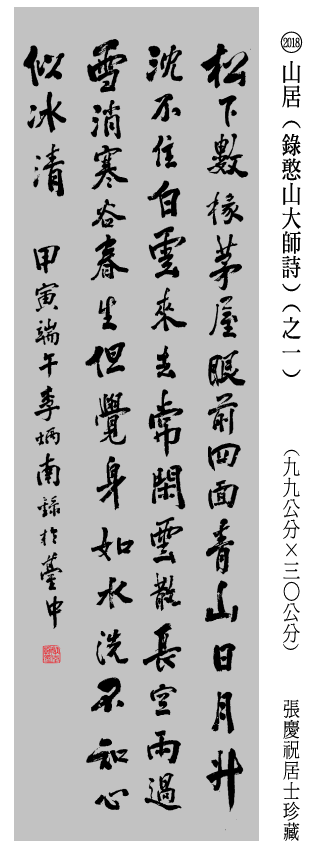 2018 山居（錄憨山大師詩）（之一） （九九公分×三〇公分） 張慶祝居士珍藏
松下數椽茅屋眼前四面青山日月升
沈不住白雲來去常閑雲散長空雨過
雪消寒谷春生但覺身如水洗不知心
似冰清 甲寅端午李炳南錄於臺中